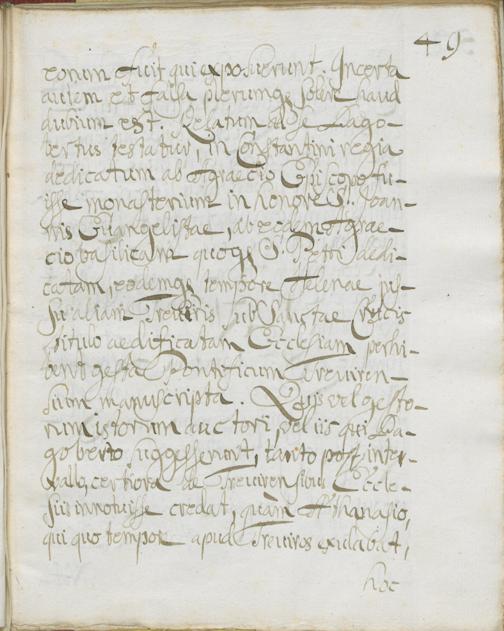 49
eorum fuit qui exposuerunt. Incerta
autem et falsa plerumq; solere haud
dubium est. Relatum a se Dago-
bertus testatur, in Constantini regia
dedicatum ab Agraecio Episcopo fu-
isse monasterium in honore S. Joan-
nis Euangelistae, ab eodemq; Agrae-
cio basilicam quoq; S. Petri dedi-
catam, eodemq; tempore Helenae jus-
su aliam Treviris sub Sanctae Crucis
titulo aedificatam Ecclesiam perhi-
bent gesta Pontificum Treviren-
sium manuscripta. Quis vel gesto-
rum istorum auctori, vel iis qui Da-
goberto suggesserunt, tanto post inter-
vallo, certiora de Trevirensium Eccle-
siis innotuisse credat, quàm Athanasio,
qui quo tempore apud Treviros exulabat,
hoc